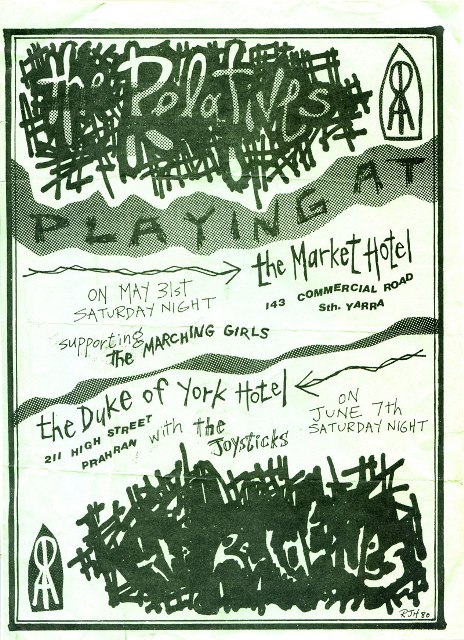 the Relatives
PLAYING AT
the Market Hotel
143 COMMERCIAL ROAD
Sth. YARRA
ON MAY 31st
SATURDAY NIGHT
supporting
the MARCHING GIRLS
the Duke of York Hotel
211 HIGH STREET
PRAHRAN
with the
Joysticks
ON
JUNE 7th
SATURDAY NIGHT
the Relatives
RJH 80